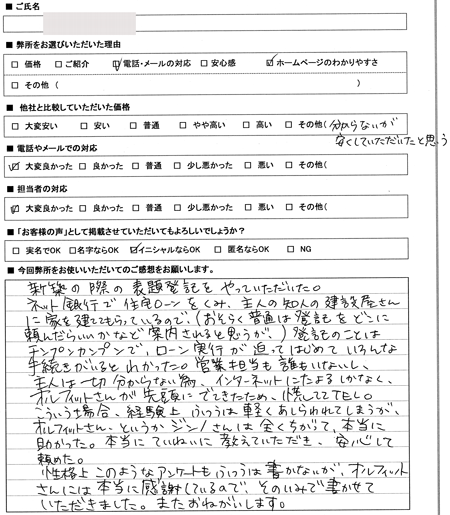 ■ ご氏名
■ 弊所をお選びいただいた理由
□ 価格 □ ご紹介 ☑ 電話・メールの対応 □ 安心感 ☑ ホームページのわかりやすさ
□ その他 ( )
■ 他社と比較していただいた価格
□ 大変安い □ 安い □ 普通 □ やや高い □ 高い □ その他( 分からないが
安くしていただいたと思う
■ 電話やメールでの対応
☑ 大変良かった □ 良かった □ 普通 □ 少し悪かった □ 悪い □ その他(
■ 担当者の対応
☑ 大変良かった □ 良かった □ 普通 □ 少し悪かった □ 悪い □ その他(
■ 「お客様の声」として掲載させていただいてもよろしいでしょうか?
□ 実名でOK □ 名字ならOK ☑ イニシャルならOK □ 匿名ならOK □ NG
■ 今回弊所をお使いいただいてのご感想をお願いします。
新築の際の表題登記をやっていただいた。
ネット銀行で住宅ローンをくみ、主人の知人の建設屋さん
に家を建ててもらっているので、(おそらく普通は登記をどこに
頼んだらいいかなど案内されると思うが、) 登記のことは
チンプンカンプンで、ローン実行が迫ってはじめていろんな
手続きがいるとわかった。営業担当も誰もいないし、
主人は一切分からない為、インターネットにたよるしかなく、
オルフィットさんが先頭にでてきたため、慌ててTEL。
こういう場合、経験上ふつうは軽くあしらわれてしまうが、
オルフィットさん、というかジンノさんは全くちがって、本当に
助かった。本当にていねいに教えていただき、安心して
頼めた。
性格上このようなアンケートもふつうは書かないが、オルフィット
さんには本当に感謝しているので、そのいみで書かせて
いただきました。またおねがいします。